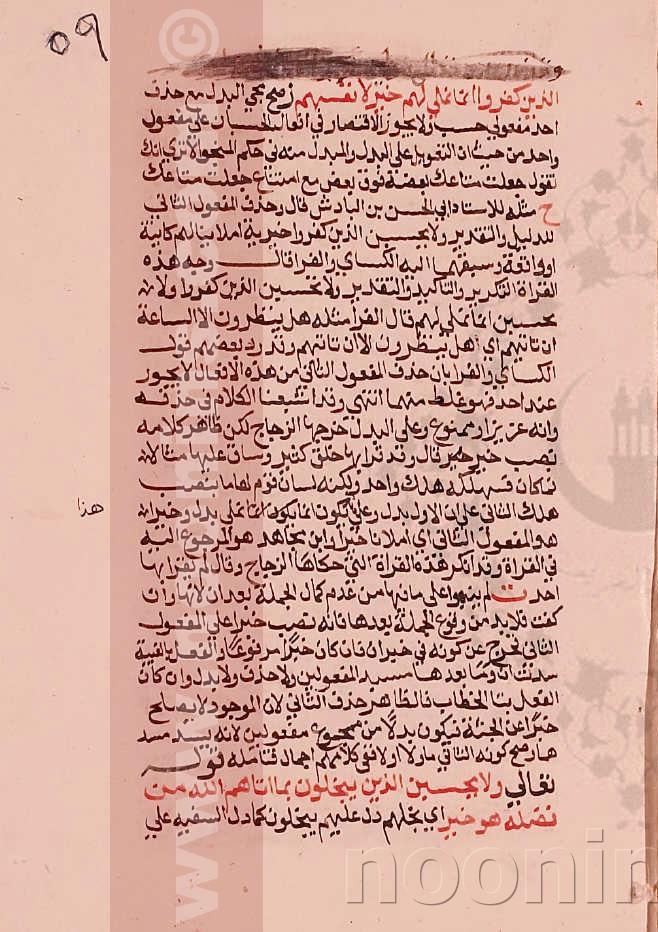 ٥٩
الذين كفروا انما نملي لهم خير لانفسهم نصح يجي البدل مع حذف
احد مفعولي حسب ولا يجوز الاقتصار في افعال الحسبان على مفعول
واحد من حيث ان التعويل على البدل والمبدل منه في حكم المنحو الا ترى انك
تقول جعلت متاعك بعضه فوق بعض مع امتناع جعلت متاعك
ح مثله للاستاد ابي الحسن بن الباذش قال وحذف المفعول الثاني
للدليل والتقدير ولا يحسبن الذين كفروا خيرية املائنا لهم كاينة
او واقعة وسبقهما اليه الكساي والفرا قال وجه هذه
القراة التكرير والتاكيد والتقدير ولا تحسبن الذين كفروا ولا
تحسبن انما نملي لهم قال الفرا مثله هل ينظرون الا الساعة
ان تاتيهم اي هل ينظرون الا ان تاتيهم وقد رد بعضهم قول
الكساي والفرا بان حذف المفعول الثاني من هذه الافعال لا يجوز
عند احد فهو غلط منهما انتهى وقد اشبعنا الكلام في حذفه
وانه عزيز او ممنوع وعلى البدل خرجها الزجاج لكن ظاهر كلامه
نصب خير خير قال وقد قرا بها خلق كثير وساق عليها مثالا
فما كان قيس هلكه هلك واحد ولكنه بنيان قوم تهدما بنصب
هلك الثاني على ان الاول بدل وعلى يكون انما نملي بدل وخيرا
هو المفعول الثاني اي املانا خيرا وابن مجاهد هو المرجوع اليه
في القراة وقد انكر هذه القراة التي حكاها الزجاج وقال لم يقرا بها
احد ت لم ينبهوا على ما فيها من عدم كمال الجملة بعد ان لانها وان
كفت فلا بد من وقوع الجملة بعدها فانه بنصب خيرا على المفعول
الثاني تخرج عن كونه في خبر ان فان كان خيرا مرفوعا والفعل بالغيبة
سدت ان وما بعدها مسد المفعولين ولا حذف ولا بدل وان كان
الفعل بتا الخطاب فالظاهر حذف الثاني لان الموجود لا يصلح
خبرا عن الجثة فيكون بدلا من مجموع مفعولين لانه يسد مسد
هما وصح كونه الثاني
هذا
تعالى ولا يحسبن الذين يبخلون بما اتاهم الله من
فضله هو خير اي بخلهم دل عليهم يبخلون كما دل السفيه على
noonin